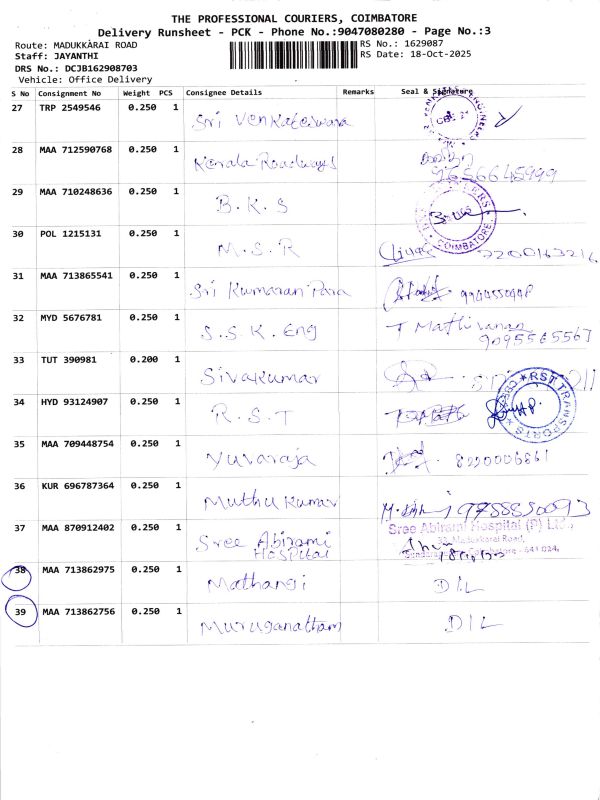 THE PROFESSIONAL COURIERS, COIMBATORE
Delivery Runsheet - PCK - Phone No.:9047080280 - Page No.:3
Route: MADUKKARAI ROAD RS No.: 1629087
Staff: JAYANTHI RS Date: 18-Oct-2025
DRS No.: DCJB162908703
Vehicle: Office Delivery
S No Consignment No Weight PCS Consignee Details Remarks Seal & Signature
27 TRP 2549546 0.250 1 Sri Venkateswara
28 MAA 712590768 0.250 1 Kerala Roadways 9656645999
29 MAA 710248636 0.250 1 B.K.S COIMBATORE
30 POL 1215131 0.250 1 M.S.R
31 MAA 713865541 0.250 1 Sri Kumaran Para
32 MYD 5676781 0.250 1 S.S.K. Eng T Mathivanan
9095565567
33 TUT 390981 0.200 1 Sivakumar
34 HYD 93124907 0.250 1 R.S.T RST TRANSPORTS
35 MAA 709448754 0.250 1 Yuvaraja 8220006861
36 KUR 696787364 0.250 1 Muthu Kumar 9788850093
37 MAA 870912402 0.250 1 Sree Abirami Sree Abirami Hospital (P) Ltd.,
Hospital Madukkarai Road,
Coimbatore - 641 024.
38 MAA 713862975 0.250 1 Mathangi D/L
39 MAA 713862756 0.250 1 Muruganatham D/L